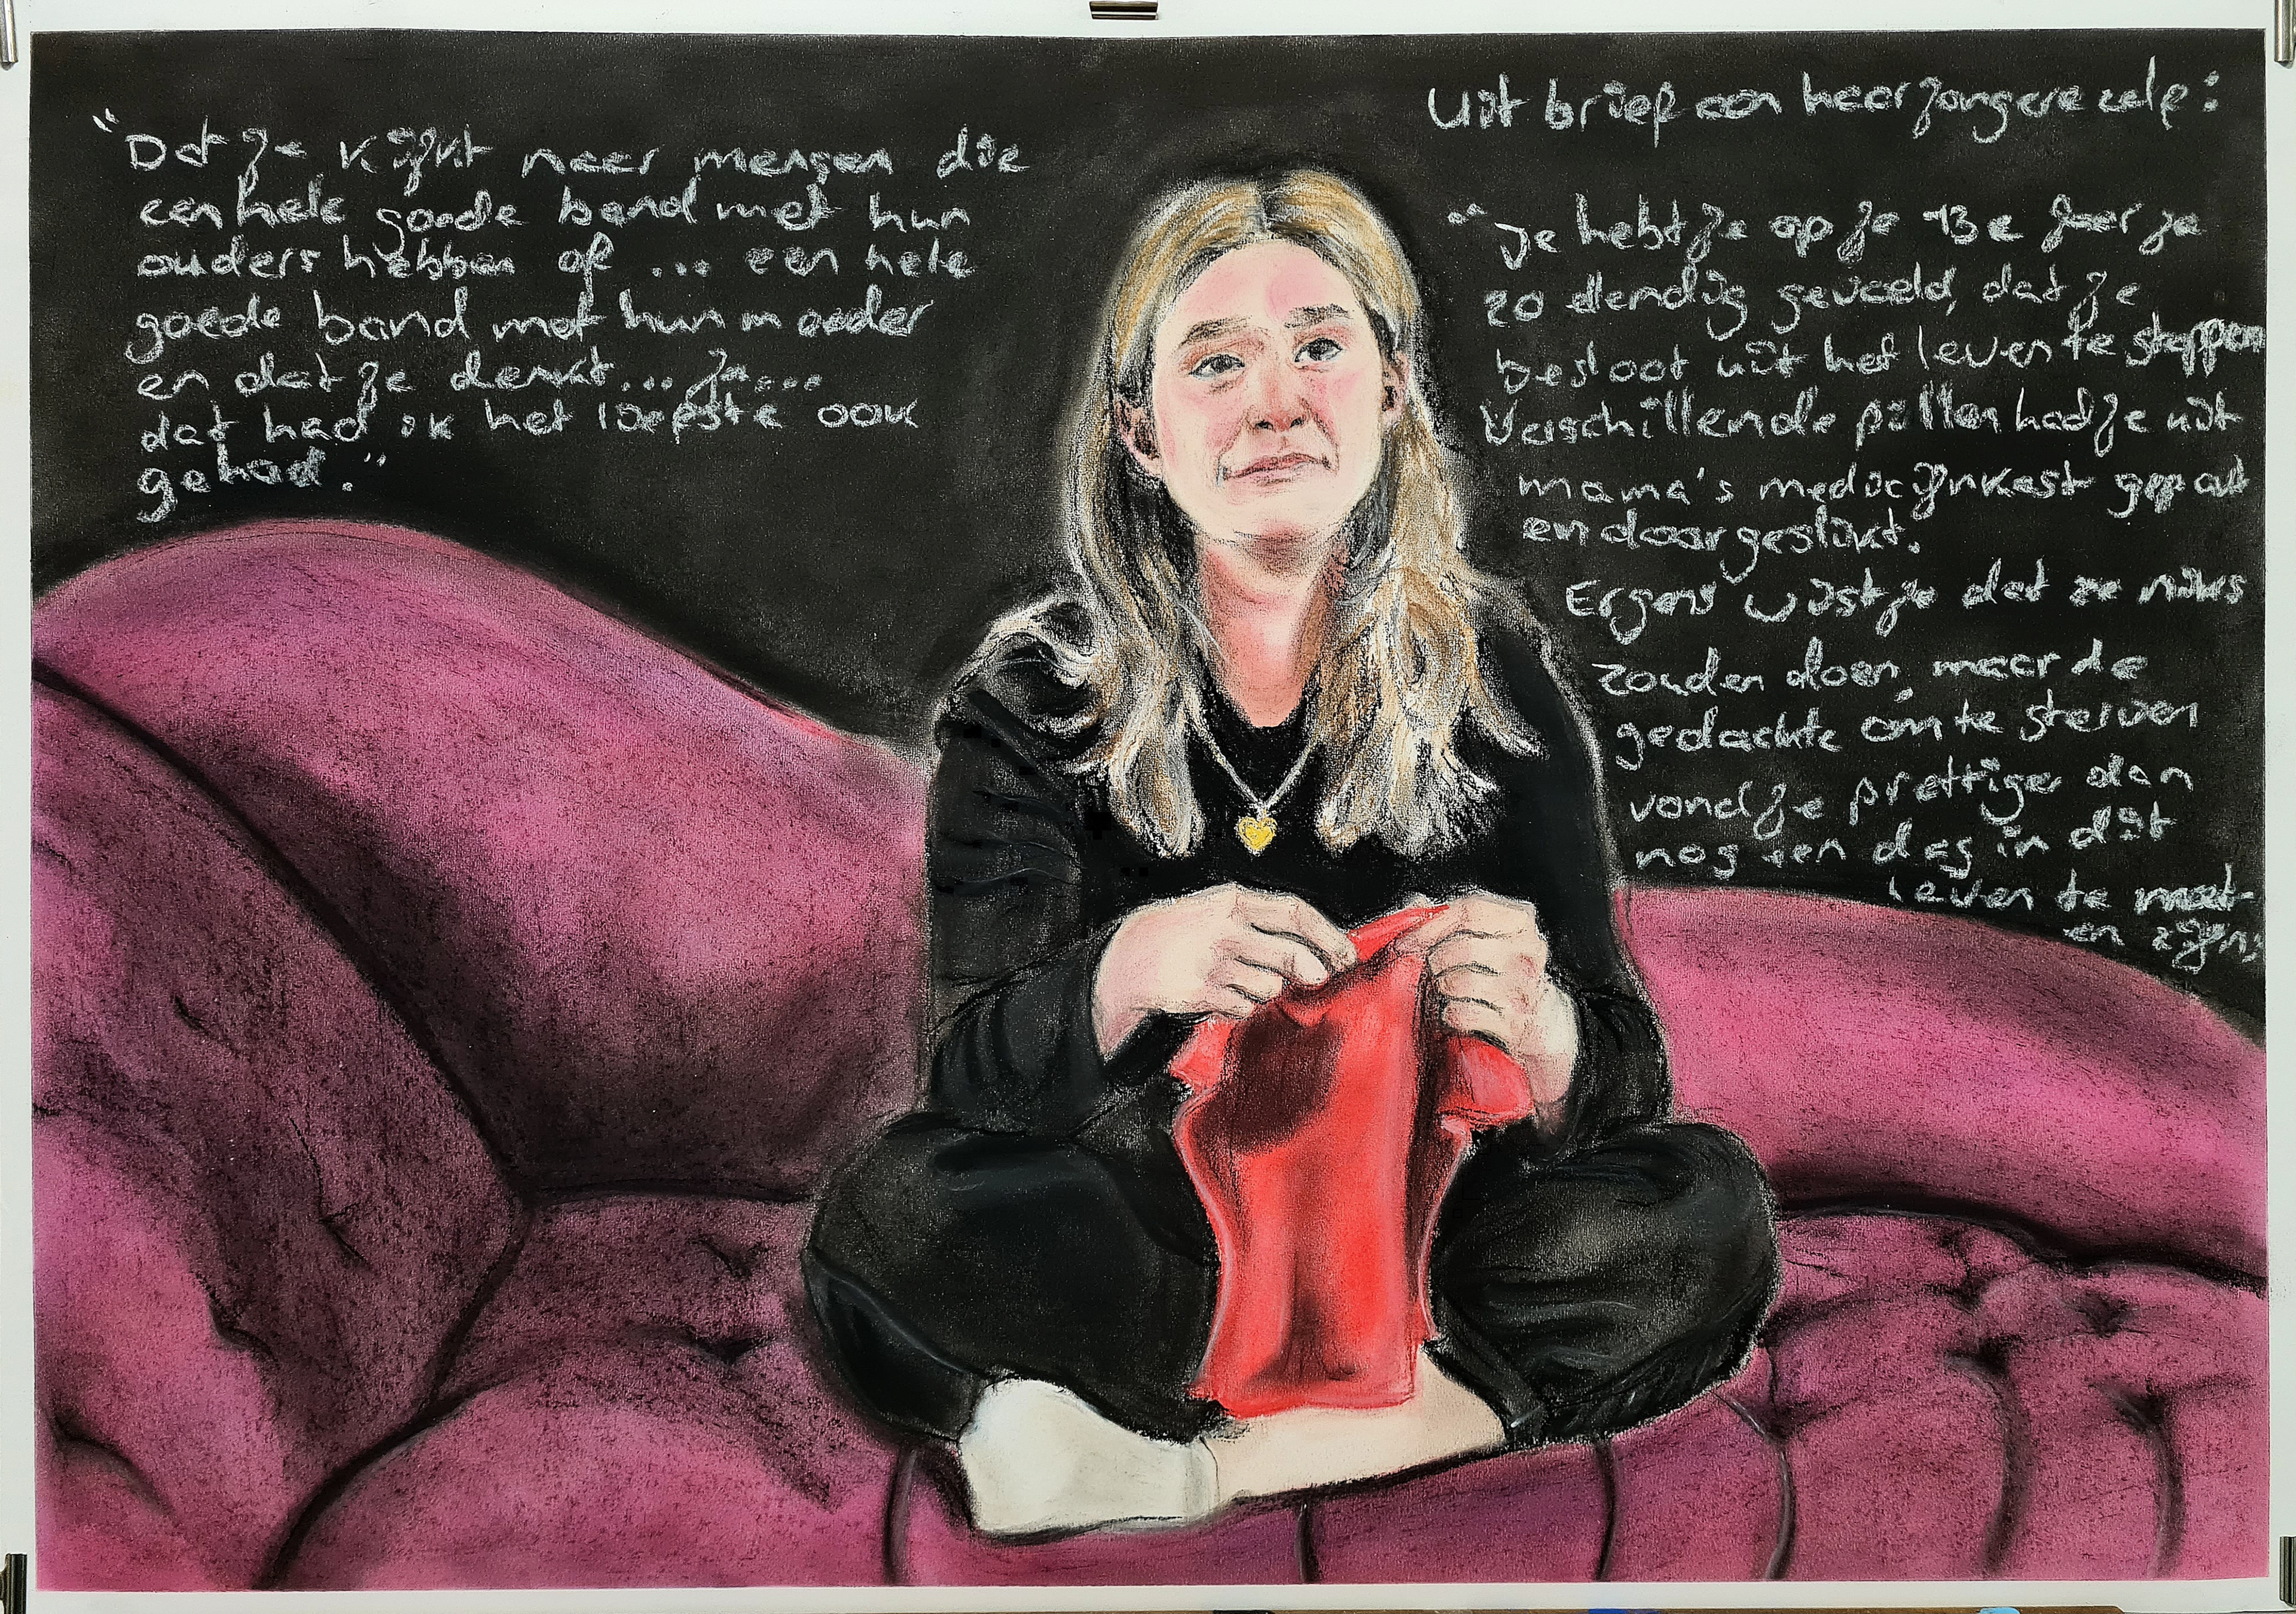 "Dat je kijkt naar mensen die
een hele goede band met hun
ouders hebben of ... een hele
goede band met hun moeder
en dat je denkt... ja...
dat had ik het liefste ook
gehad."
Uit brief aan haar jongere zelf:
"Je hebt je op je 13e jaar je
zo ellendig gevoeld, dat je
besloot uit het leven te stappen
Verschillende pillen had je uit
mama's medicijnkast gepakt
en doorgeslikt.
Ergens wist je dat ze niks
zouden doen, maar de
gedachte om te sterven
vond je prettiger dan
nog een dag in dit
leven te moet-
en zijn,